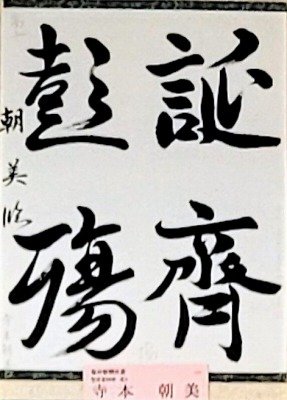 誕齊
彭殤
朝美臨
寺本 朝美